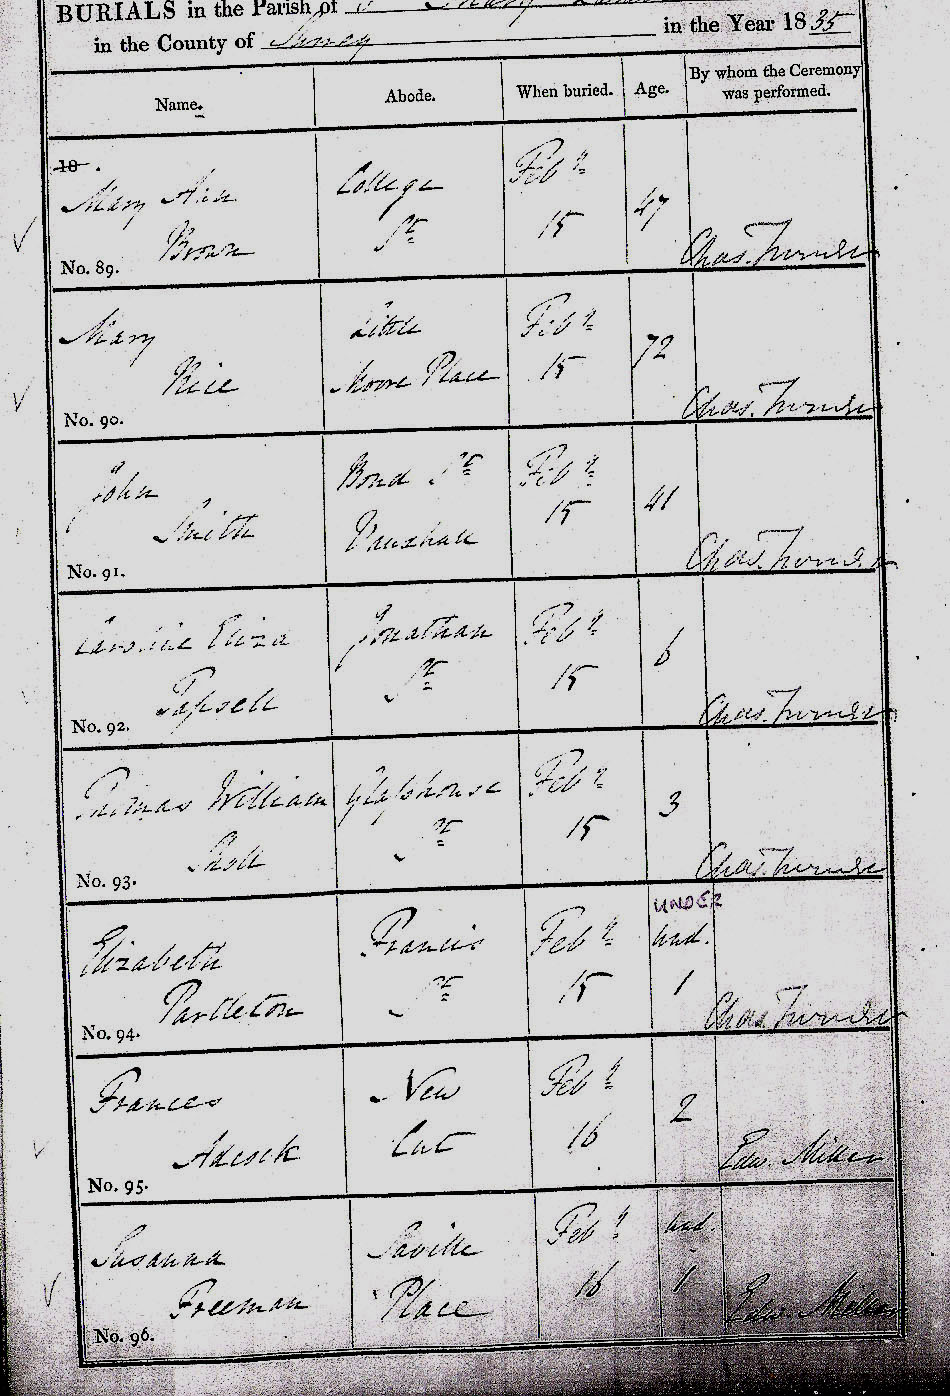 BURIALS in the Parish of St Mary
in the County of Surrey in the Year 1835
Name. Abode. When buried. Age. By whom the Ceremony
was performed.
18
Mary Ann College Feby 47
Brown St 15 Chas. Turner
No. 89.
Mary Little Feby 72
Rice Moore Place 15 Chas. Turner
No. 90.
John Bond St Feby 41
Smith Vauxhall 15 Chas. Turner
No. 91.
Caroline Eliza Jonathan Feby 6
Topsell St 15 Chas. Turner
No. 92.
Thomas William Glasshouse Feby 3
St 15 Chas. Turner
No. 93.
UNDER
Elizabeth Francis Feby und.
Partleton St 15 1 Chas. Turner
No. 94.
Frances New Feby 2
Adcock Cut 16 Edw. Miller
No. 95.
Susanna Saville Feby und.
Freeman Place 16 1 Edw. Miller
No. 96.